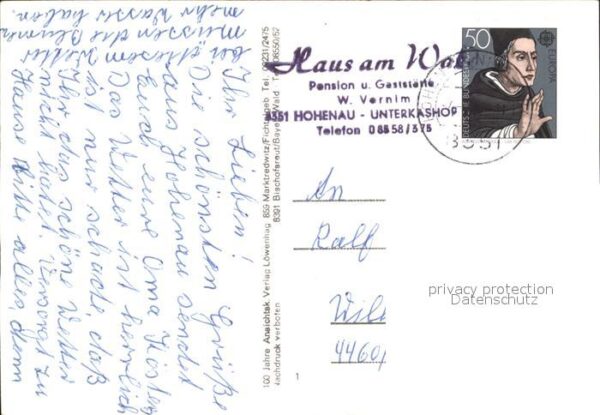 Ihr Lieben!
Die schönsten Grüße
aus Hohenau sendet
Euch eure Oma
Das Wetter ist herrlich
ist nur schade, daß
Ihr das schöne Wetter
nicht habt. Versorgt zu
Hause bitte alles, denn
bei diesem Wetter
müssen die Blumen
mehr Wasser haben.
100 Jahre Ansichtsk Verlag Löwenhag 859 Marktredwitz/Fichtelgeb Tel. 09231/2475
Nachdruck verboten 8391 Bischofsreut/Bayer Wald Tel. 08550/57
Haus am Wal
Pension u. Gaststätte
W. Vernim
8351 HOHENAU - UNTERKASHOF
Telefon 08558/375
50
EUROPA
DEUTSCHE BUNDESPOST
8351
An
Ralf
Wil
4460
privacy protection
Datenschutz
1